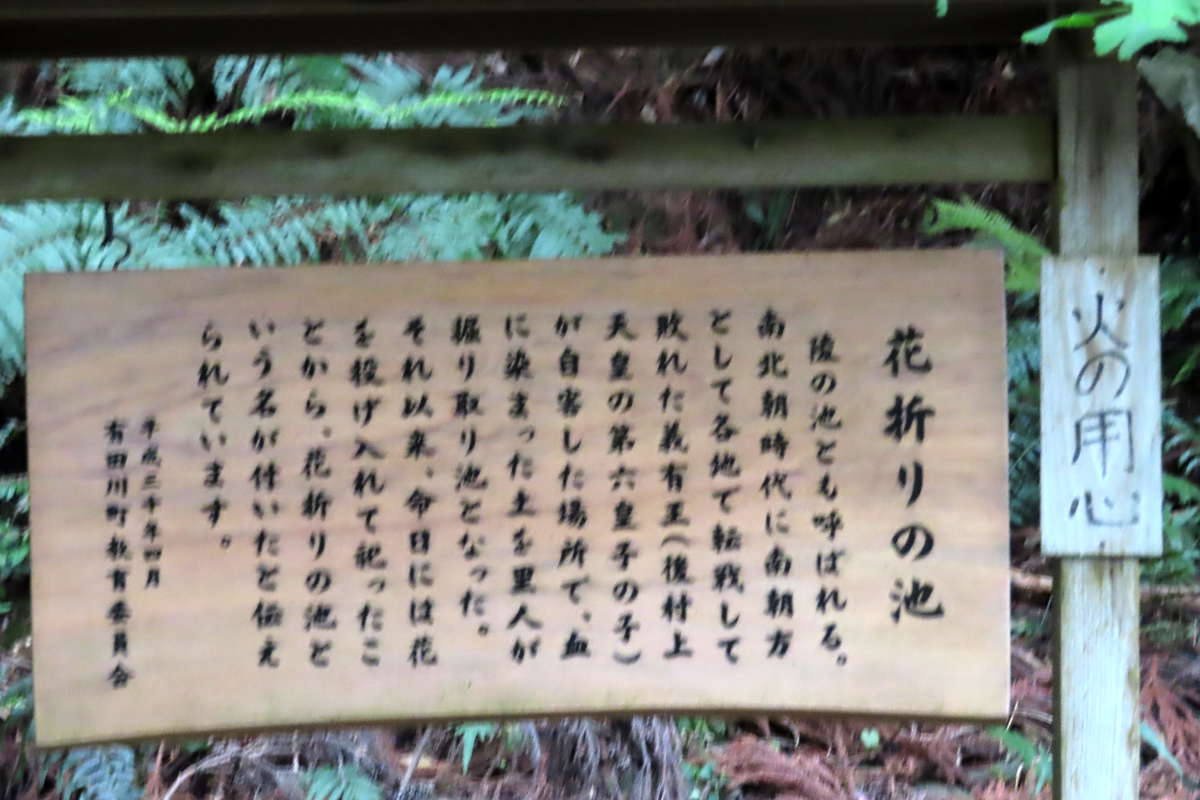 花折りの池
陵の池とも呼ばれる。
南北朝時代に南朝方
として各地で転戦して
敗れた義有王(後村上
天皇の第六皇子の子)
が自害した場所で、血
に染まった土を里人が
掘り取り池となった。
それ以来、命日には花
を投げ入れて祀ったこ
とから、花折りの池と
いう名が付いたと伝え
られています。
平成三十年四月
有田川町教育委員会
火の用心